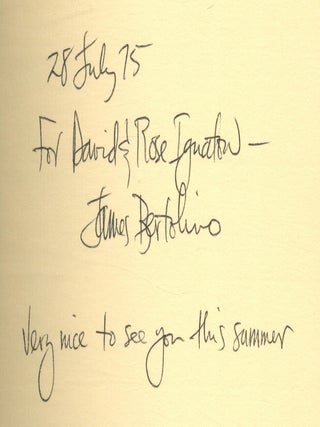 28 July 75
For David & Rose Ignatow —
James Bertolino
Very nice to see you this summer